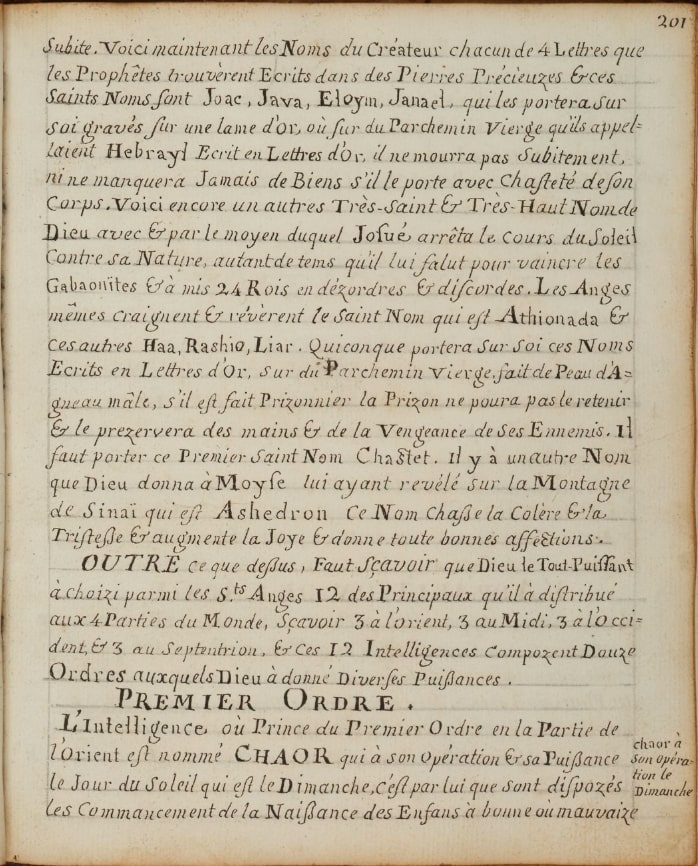 201
Subite. Voici maintenant les Noms du Créateur chacun de 4 Lettres que
les Prophêtes trouvèrent Ecrits dans des Pierres Précieuzes & ces
Saints Noms sont Joac, Java, Eloym, Janael, qui les portera sur
soi gravés sur une lame d'or, où sur du Parchemin Vierge qu'ils appel=
laient Hebrayl Ecrit en Lettres d'Or, il ne mourra pas Subitement,
ni ne manquera Jamais de Biens s'il le porte avec Chasteté de son
Corps. Voici encore un autres Très-Saint & Très-Haut Nom de
Dieu avec & par le moyen duquel Josué arrêta le Cours du Soleil
Contre sa Nature, autant de tems qu'il lui falut pour vaincre les
Gabaonites & à mis 24 Rois en dézordres & discordes. Les Anges
mêmes craignent & révèrent le Saint Nom qui est Athionada &
ces autres Haa, Rashio, Liar. Quiconque portera sur soi ces Noms
Ecrits en Lettres d'Or, sur du Parchemin Vierge, fait de Peau d'A=
gneau mâle, s'il est fait Prizonnier la Prizon ne poura pas le retenir
& le prezervera des mains & de la Vengeance de ses Ennemis. Il
faut porter ce Premier Saint Nom Chastet. Il y à un autre Nom
que Dieu donna à Moyse lui ayant revélé sur la Montagne
de Sinaï qui est Ashedron Ce Nom Chaße la Colère & la
Tristeße & augmente la Joye & donne toute bonnes affections.
OUTRE ce que deßus, Faut Sçavoir que Dieu le Tout-Puissant
à choizi parmi les S.ts Anges 12 des Principaux qu'il à distribué
aux 4 Parties du Monde, Sçavoir 3 à l'orient, 3 au Midi, 3 à l'occi=
dent, & 3 au Septentrion, & Ces 12 Intelligences Compozent Douze
Ordres auxquels Dieu à donné Diverses Puißances.
PREMIER ORDRE.
L'Intelligence où Prince du Premier Ordre en la Partie de
l'Orient est nommé CHAOR qui à son Opération & sa Puißance
le Jour du Soleil qui est le Dimanche, c'est par lui que sont dispozés
les Commancement de la Naißance des Enfans à bonne où mauvaize
chaor à
son opéra-
tion le
Dimanche